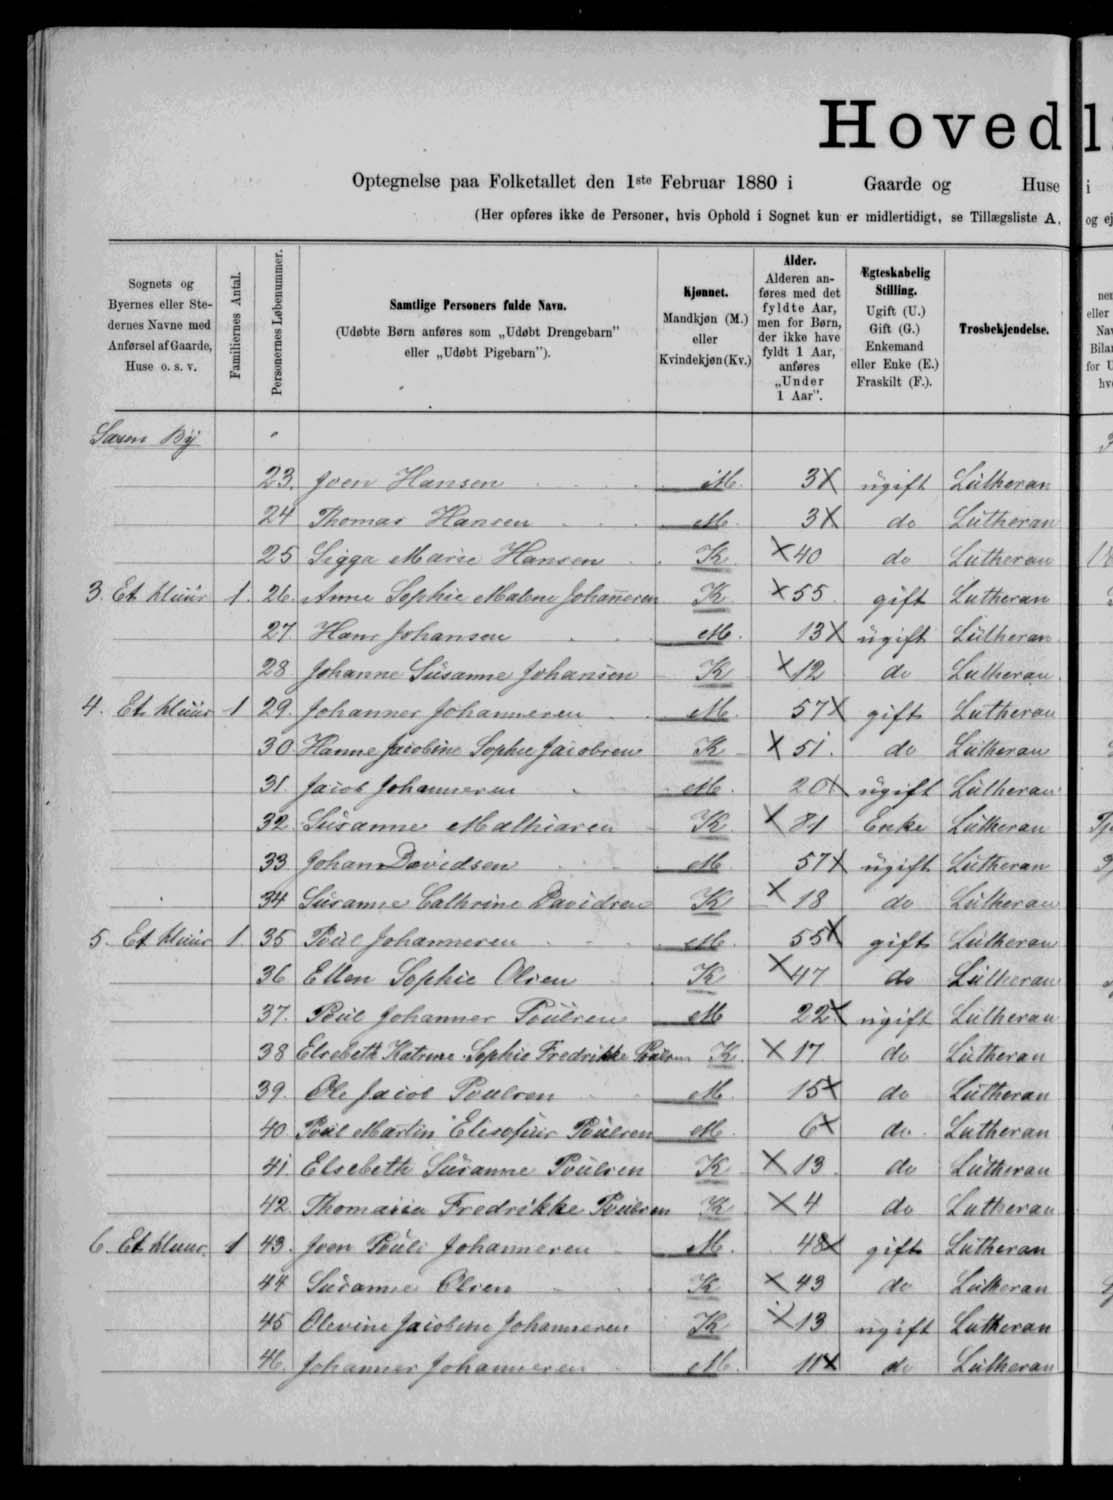 Hovedl
Optegnelse paa Folketallet den 1ste Februar 1880 i Gaarde og Huse i
(Her opføres ikke de Personer, hvis Ophold i Sognet kun er midlertidigt, se Tillægsliste A, og ej
Sognets og Byernes eller Stedernes Navne med Anførsel af Gaarde, Huse o. s. v.
Familiernes Antal.
Personernes Løbenummer.
Samtlige Personers fulde Navn.
(Udøbte Børn anføres som „Udøbt Drengebarn" eller „Udøbt Pigebarn").
Kjønnet.
Mandkjøn (M.) eller Kvindekjøn (Kv.)
Alder.
Alderen anføres med det fyldte Aar, men for Børn, der ikke have fyldt 1 Aar, anføres „Under 1 Aar".
Ægteskabelig Stilling.
Ugift (U.) Gift (G.) Enkemand eller Enke (E.) Fraskilt (F.).
Trosbekjendelse.
By
23. Joen Hansen M. 3 ugift Lutheran
24 Thomas Hansen M. 3 do Lutheran
25 Sigga Marie Hansen K 40 do Lutheran
3. Et Huus 1. 26. Anne Sophie Malene Johannesen K 55 gift Lutheran
27 Hans Johansen M. 13 ugift Lutheran
28 Johanne Susanne Johansen K 12 do Lutheran
4. Et Huus 1 29. Johannes Johannesen M. 57 gift Lutheran
30 Hanne Jacobine Sophie Jacobsen K 51. do Lutheran
31. Jacob Johannesen M. 20 ugift Lutheran
32. Susanne Mathiasen K 81 Enke Lutheran
33 Johan Davidsen M 57 ugift Lutheran
34 Susanne Cathrine Davidsen K 18 do Lutheran
5. Et Huus 1 35 Poul Johannesen M. 55 gift Lutheran
36 Ellen Sophie Olsen K 47 do Lutheran
37. Poul Johannes Poulsen M 22 ugift Lutheran
38 Elsebeth Katrine Sophie Fredrikke Poulsen K. 17 do Lutheran
39. Ole Jacob Poulsen M. 15 do Lutheran
40. Poul Martin Elisofius Poulsen M. 6 do Lutheran
41. Elsebeth Susanne Poulsen K 13 do Lutheran
42. Thomasia Fredrikke Poulsen K 4 do Lutheran
6. Et Huus. 1 43. Joen Pouli Johannesen M. 48 gift Lutheran
44 Susanne Olsen K 43 do Lutheran
45 Olevine Jacobine Johannesen K 13 ugift Lutheran
46. Johannes Johannesen M. 11 do Lutheran